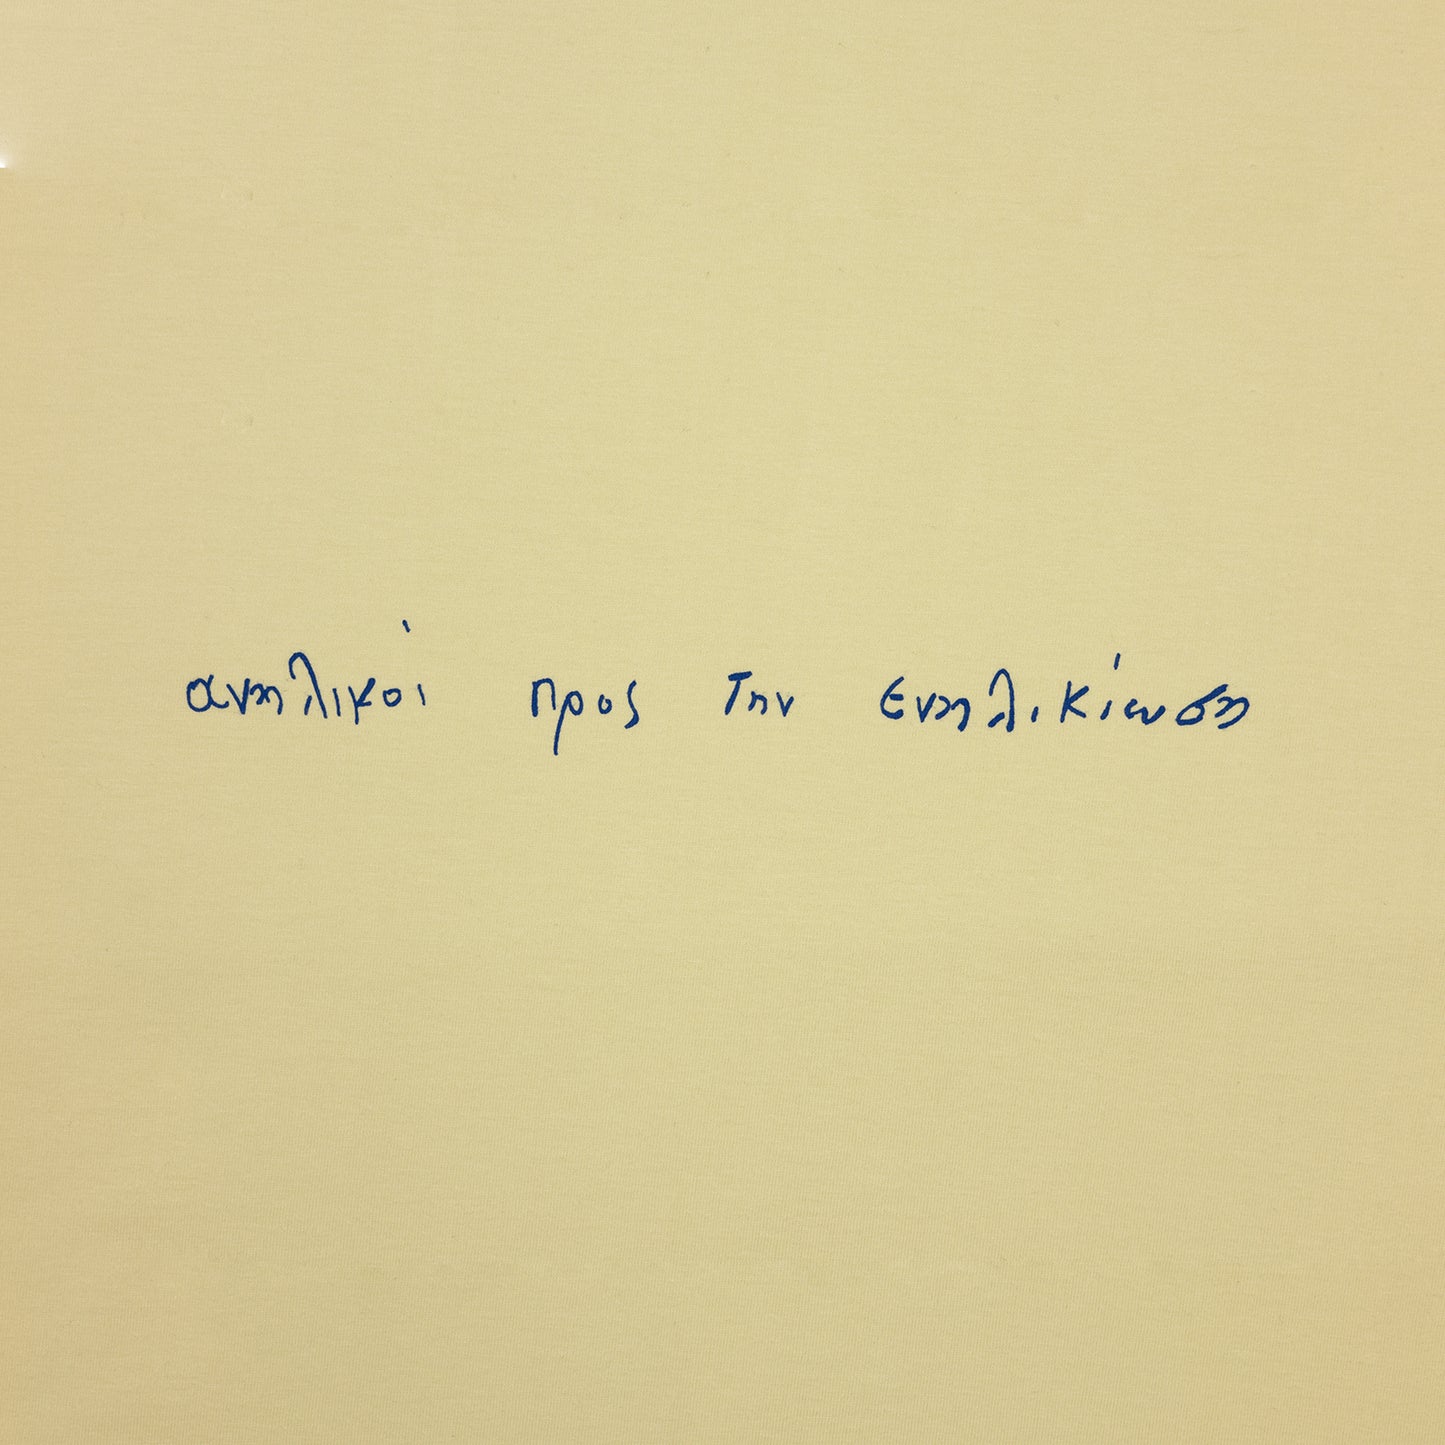 ανηλικοί προς την ενηλικίωση